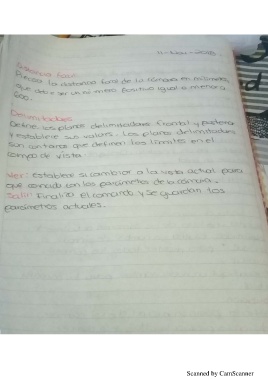 11-Nov-2018
Distancia focal
Precisa la distancia focal de la cámara en milímetros,
que debe ser un número positivo igual o menor a
Delimitadores
Define los planos delimitadores frontal y
y establece su valores. Los planos delimitadores
son contornos que definen los límites en el
campo de vista.
Ver: Establece si cambiar a la vista actual para
que coincida con los parámetros de la cámara.
Salir: Finaliza el comando y se guardan los
parámetros actuales.
Scanned by CamScanner